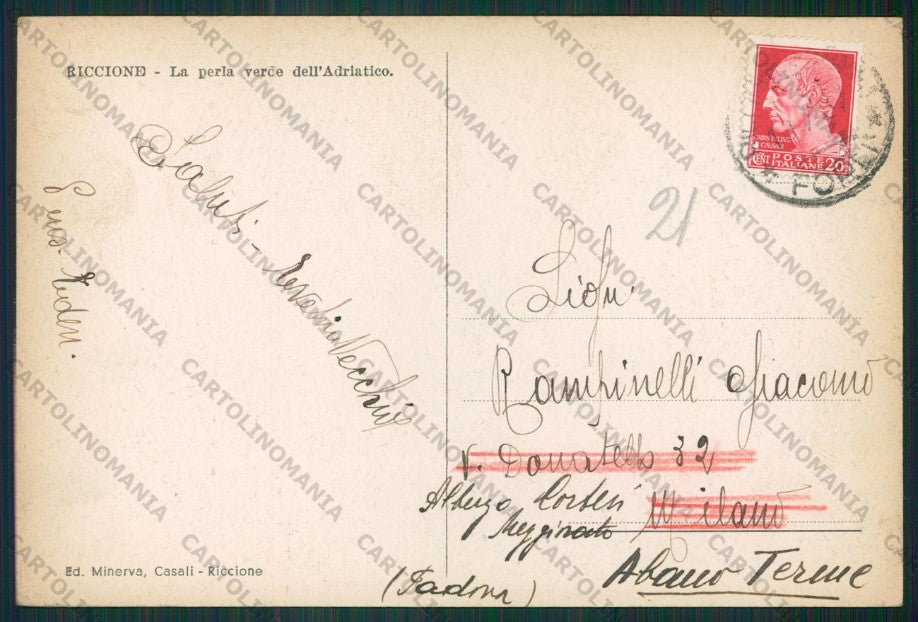 RICCIONE - La perla verde dell'Adriatico.
Saluti -
Vecchi
21
POSTE
ITALIANE
CENT 20
FORLI
Sign.
Rampinelli Giacomo
V. Donatello 32
Milano
Albergo Cortesi
Meggiorato
Abano Terme
(Padova)
Ed. Minerva, Casali - Riccione
CARTOLINOMANIA